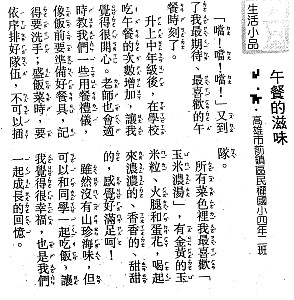 生活小品
午餐的滋味
高雄市前鎮區民權國小四年二班
「噹！噹！噹！」又到
了我最期待、最喜歡的午
餐時刻了。
升上中年級後，在學校
吃午餐的次數增加，讓我
覺得很開心。老師也會適
時教我們一些用餐禮儀，
像飯前要準備好餐具，記
得要洗手；盛飯菜時，要
依序排好隊伍，不可以插
隊。
所有菜色裡我最喜歡「
玉米濃湯」，有金黃的玉
米粒、火腿和蛋花，喝起
來濃濃的、香香的、甜甜
的，感覺好滿足呵！
雖然沒有山珍海味，但
可以和同學一起吃飯，讓
我覺得很幸福，也是我們
一起成長的回憶。